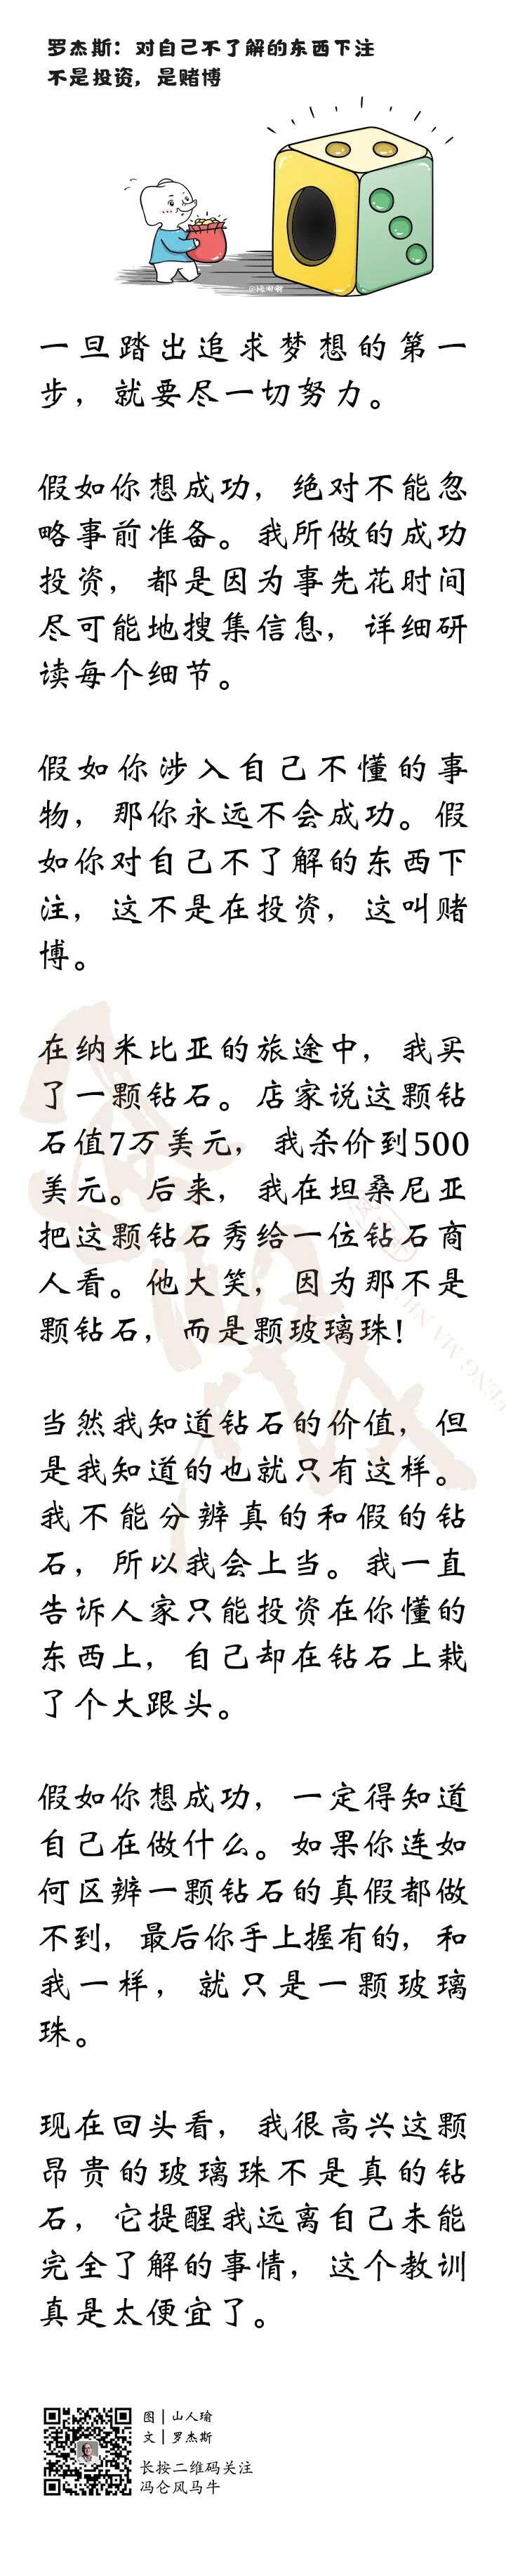 罗杰斯：对自己不了解的东西下注
不是投资，是赌博
一旦踏出追求梦想的第一
步，就要尽一切努力。
假如你想成功，绝对不能忽
略事前准备。我所做的成功
投资，都是因为事先花时间
尽可能地搜集信息，详细研
读每个细节。
假如你涉入自己不懂的事
物，那你永远不会成功。假
如你对自己不了解的东西下
注，这不是在投资，这叫赌
博。
在纳米比亚的旅途中，我买
了一颗钻石。店家说这颗钻
石值7万美元，我杀价到500
美元。后来，我在坦桑尼亚
把这颗钻石秀给一位钻石商
人看。他大笑，因为那不是
颗钻石，而是颗玻璃珠！
当然我知道钻石的价值，但
是我知道的也就只有这样。
我不能分辨真的和假的钻
石，所以我会上当。我一直
告诉人家只能投资在你懂的
东西上，自己却在钻石上栽
了个大跟头。
假如你想成功，一定得知道
自己在做什么。如果你连如
何区辨一颗钻石的真假都做
不到，最后你手上握有的，和
我一样，就只是一颗玻璃
珠。
现在回头看，我很高兴这颗
昂贵的玻璃珠不是真的钻
石，它提醒我远离自己未能
完全了解的事情，这个教训
真是太便宜了。
图｜山人瑜
文｜罗杰斯
长按二维码关注
冯仑风马牛